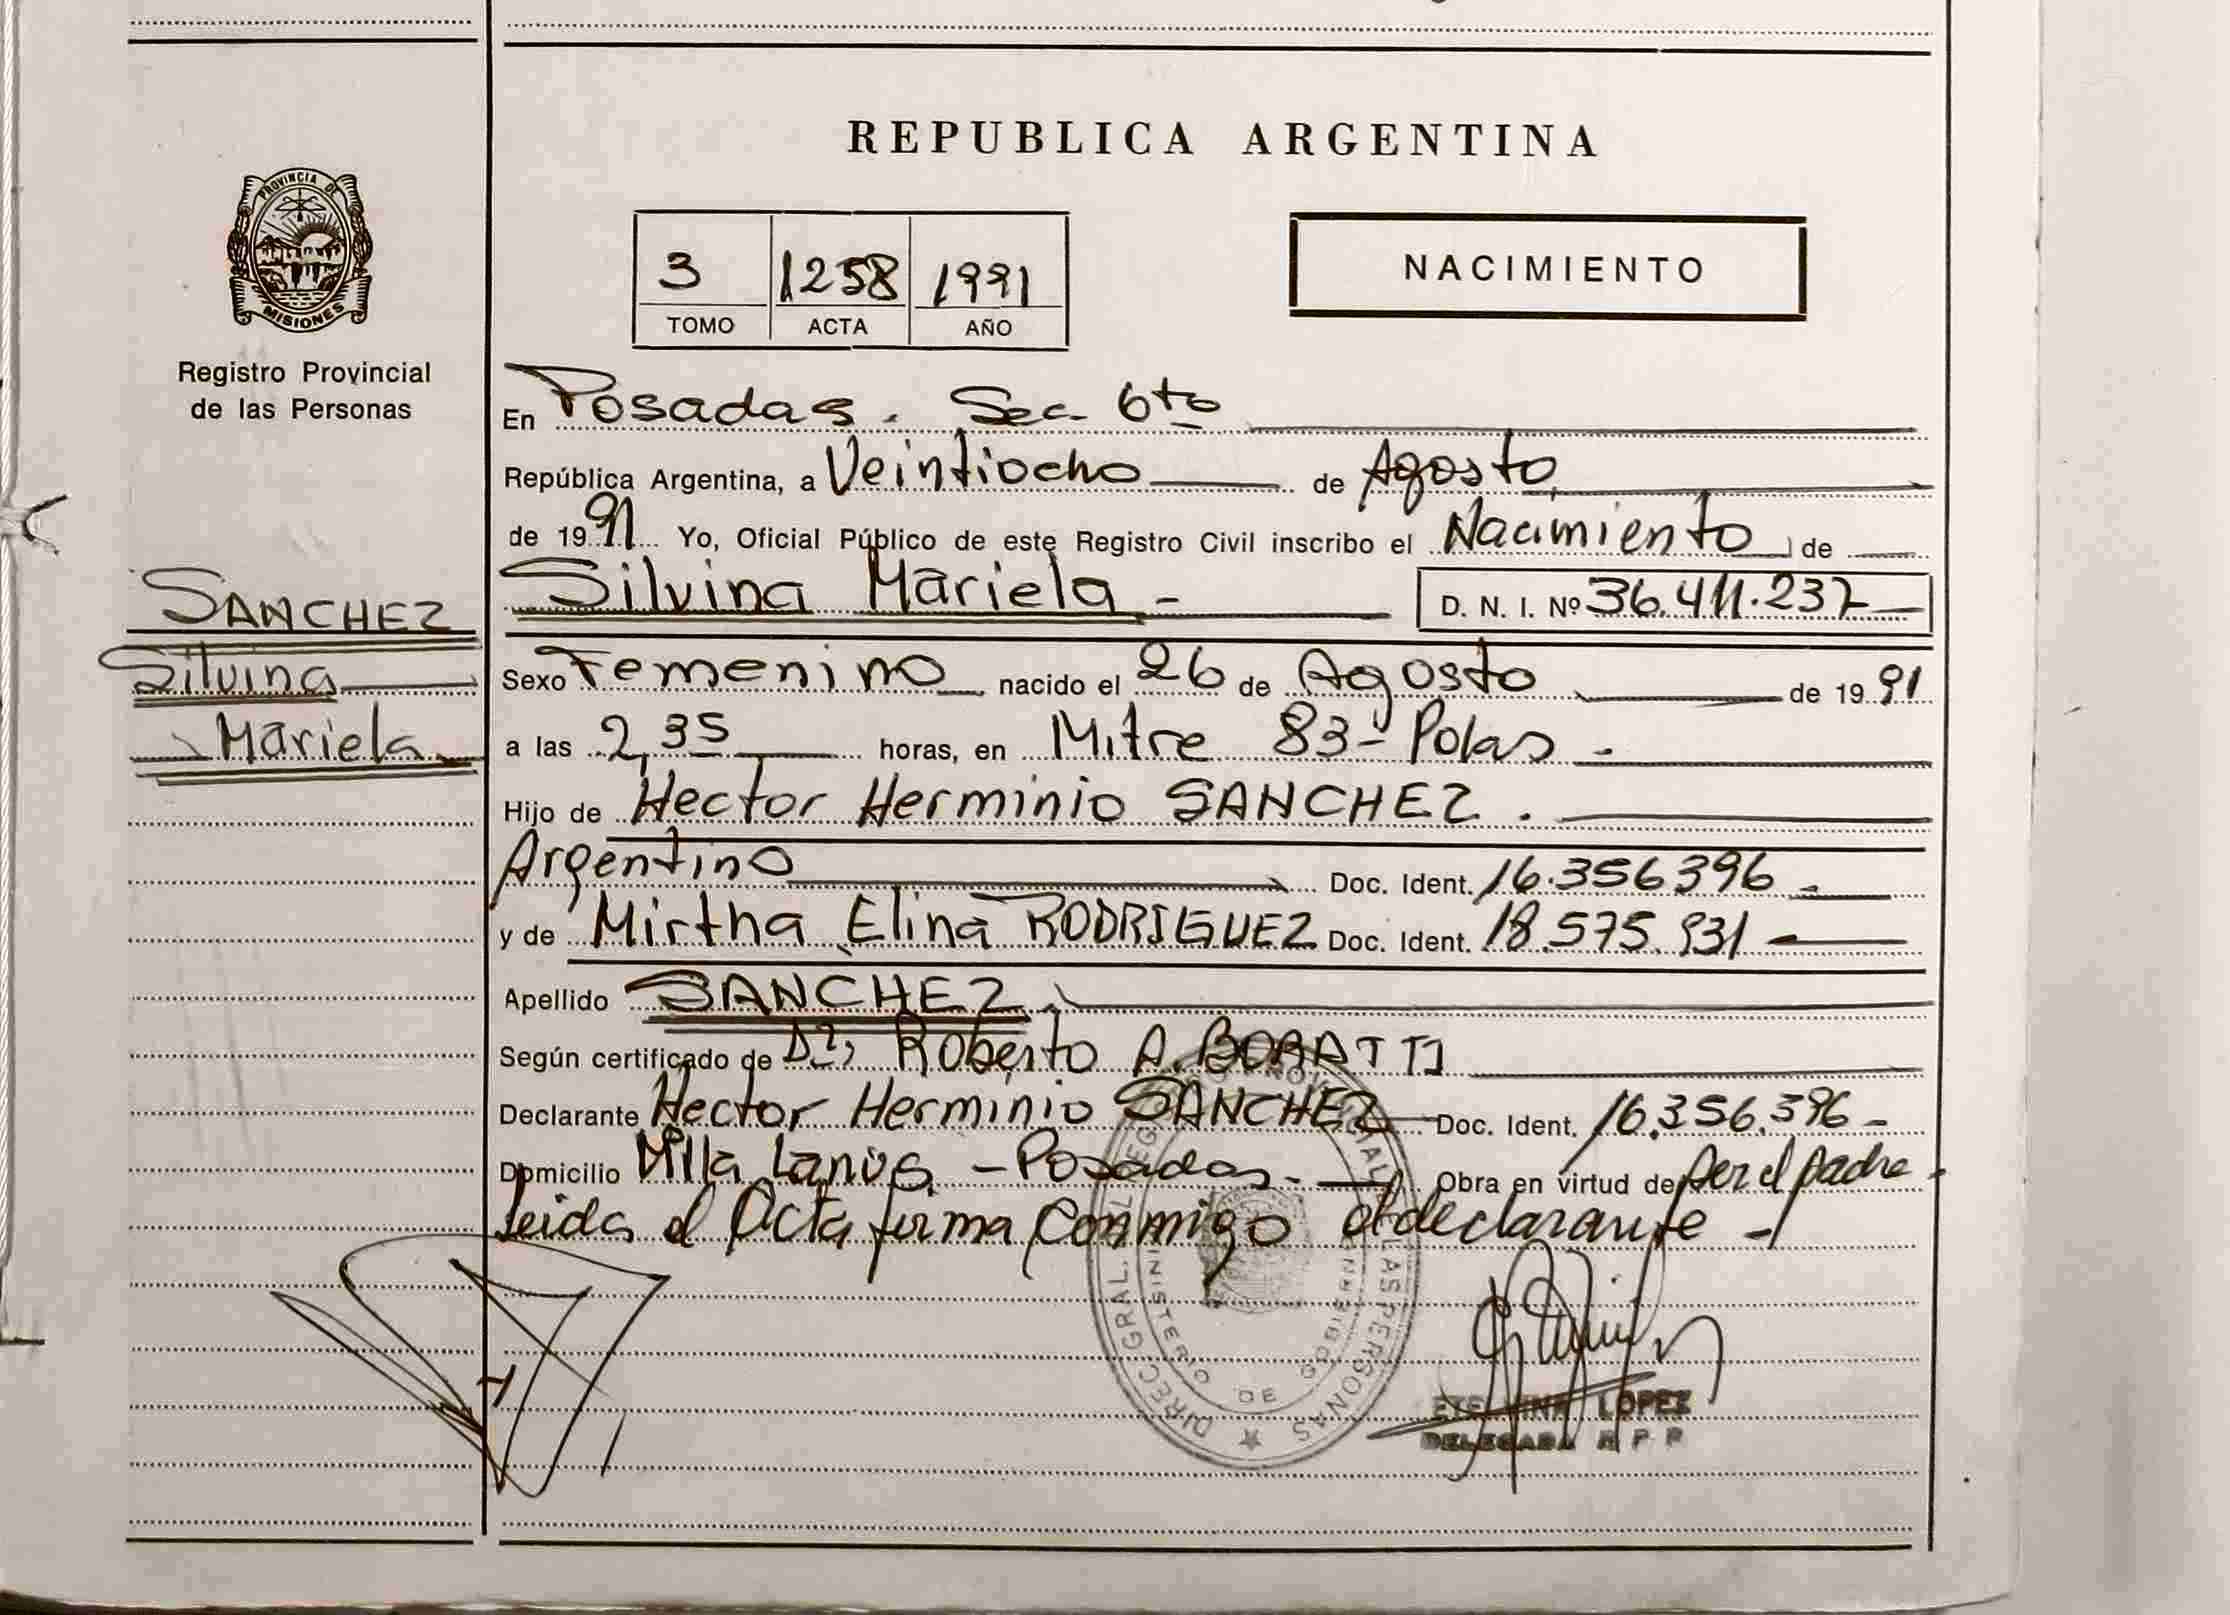 REPUBLICA ARGENTINA
PROVINCIA DE
MISIONES
Registro Provincial
de las Personas
3 1258 1991
TOMO ACTA AÑO
NACIMIENTO
En Posadas. Sec. 6to
República Argentina, a Veintiocho de Agosto
de 1991 Yo, Oficial Público de este Registro Civil inscribo el Nacimiento de
SANCHEZ
Silvina
Mariela
Silvina Mariela - D. N. I. Nº 36.411.237
Sexo Femenino nacido el 26 de Agosto de 1991
a las 2,35 horas, en Mitre 83- Pdas -
Hijo de Hector Herminio SANCHEZ.
Argentino Doc. Ident. 16.356396 -
y de Mirtha Elina RODRIGUEZ Doc. Ident. 18.575.931 -
Apellido SANCHEZ
Según certificado de Roberto A. BORATTI
Declarante Hector Herminio SANCHEZ Doc. Ident. 16.356.396 -
Domicilio Villa Lanus - Posadas. Obra en virtud de ser el padre -
Leida el Acta firma conmigo el declarante -
DIREC. GRAL. DEL REGISTRO PROVINCIAL DE LAS PERSONAS
MINISTERIO DE GOBIERNO
LOPEZ
DELEGADA R P P